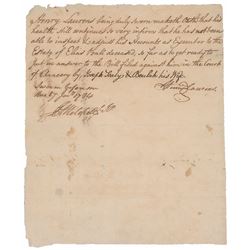 Henry Laurens being duly sworn maketh Oath that his
health still continues so very infirm that he has not been
able to inspect & adjust his Accounts as Executor to the
Estate of Elias Foull deceased, so far as to get ready to
put in an answer to the Bill filed against him in the Court
of Chancery by Joseph & his Wife
Sworn before
me 17 1784
Henry Laurens